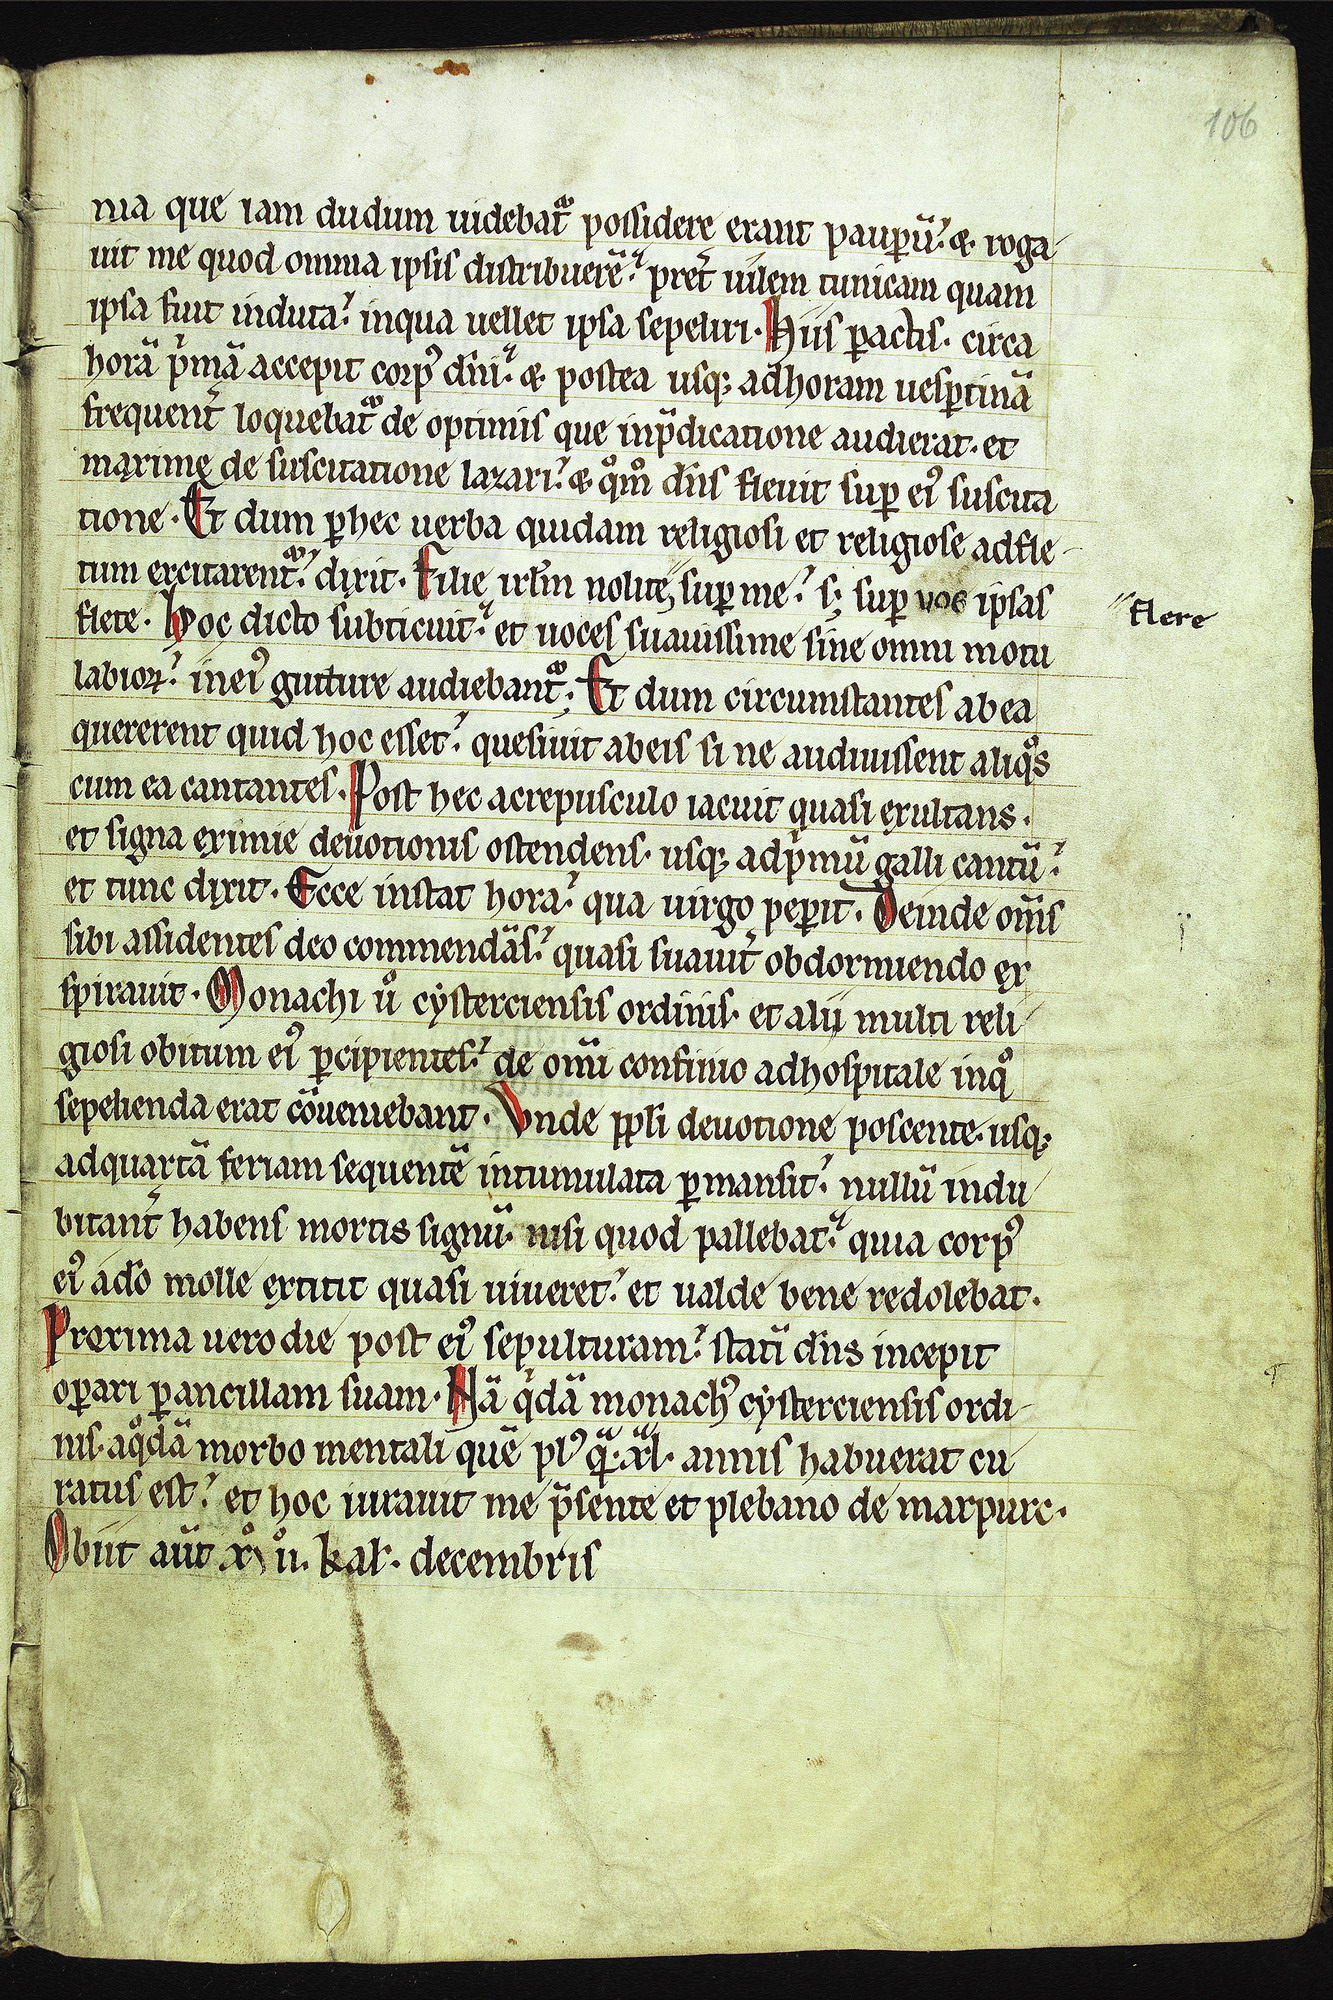 106
nia que iam dudum uidebat᷑ possidere erant paup̲ū. ⁊ roga-
uit me quod omnia ipsis distribuerē. pret̄ uilem tunicam quam
ipsa fuit induta. inqua uellet ipsa sepeliri. Hiis p̲actis. circa
horā p̄mā accepit corpꝰ dn̄i. ⁊ postea usqꝫ adhoram uesp̲tinā
frequent̄ loquebat᷑ de optimis que inp̄dicatione audierat. et
maxime de suscitatione lazari. ⁊ qͦmͦ dn̄s fleuit sup̲ eiꝰ suscita
tione. Et dum p̲ hec uerba quidam religiosi et religiose adfle-
tum excitarent᷑. dixit. Filie irl̄m nolite sup̲ me. sꝫ sup̲ uos ipsas
flere
flete. Hoc dicto subticuit. et uoces suauissime sine omni motu
labioꝝ. ineiꝰ gutture audiebant᷑; Et dum circumstantes abea
quererent quid hoc esset. quesiuit abeis si ne audiuissent aliqͦs
cum ea cantantes. Post hec acrepusculo iacuit quasi exultans.
et signa eximie deuotionis ostendens. usqꝫ adp̄mū galli cantū.
et tunc dixit. Ecce instat hora. qua uirgo pep̲it. Deinde om̄s
sibi assidentes deo commendās. quasi suauit̄ obdormiendo ex
spirauit. Monachi uͦ cysterciensis ordinis. et alij multi reli
giosi obitum eiꝰ p̲cipientes. de om̄i confinio adhospitale inqͦ
sepelienda erat cōueniebant. Vnde pp̲li deuotione poscente. usqꝫ
adquartā feriam sequentē intumulata p̲mansit. nullū indu
bitant̄ habens mortis signū. nisi quod pallebat. quia corpꝰ
eiꝰ adō molle extitit quasi uiueret. et ualde bene redolebat.
Proxima uero die post eiꝰ sepulturam. statī dn̄s incepit
op̲ari p̲ ancillam suam. Nā qͥdā monachꝰ cysterciensis ordi-
nis. aqͦdā morbo mentali quē plꝰ qᷓ. xl. annis habuerat cu
ratus est. et hoc iurauit me p̄sente et plebano de marpurc.
Obiit aūt xͦv uͦ. kal̄. decembris